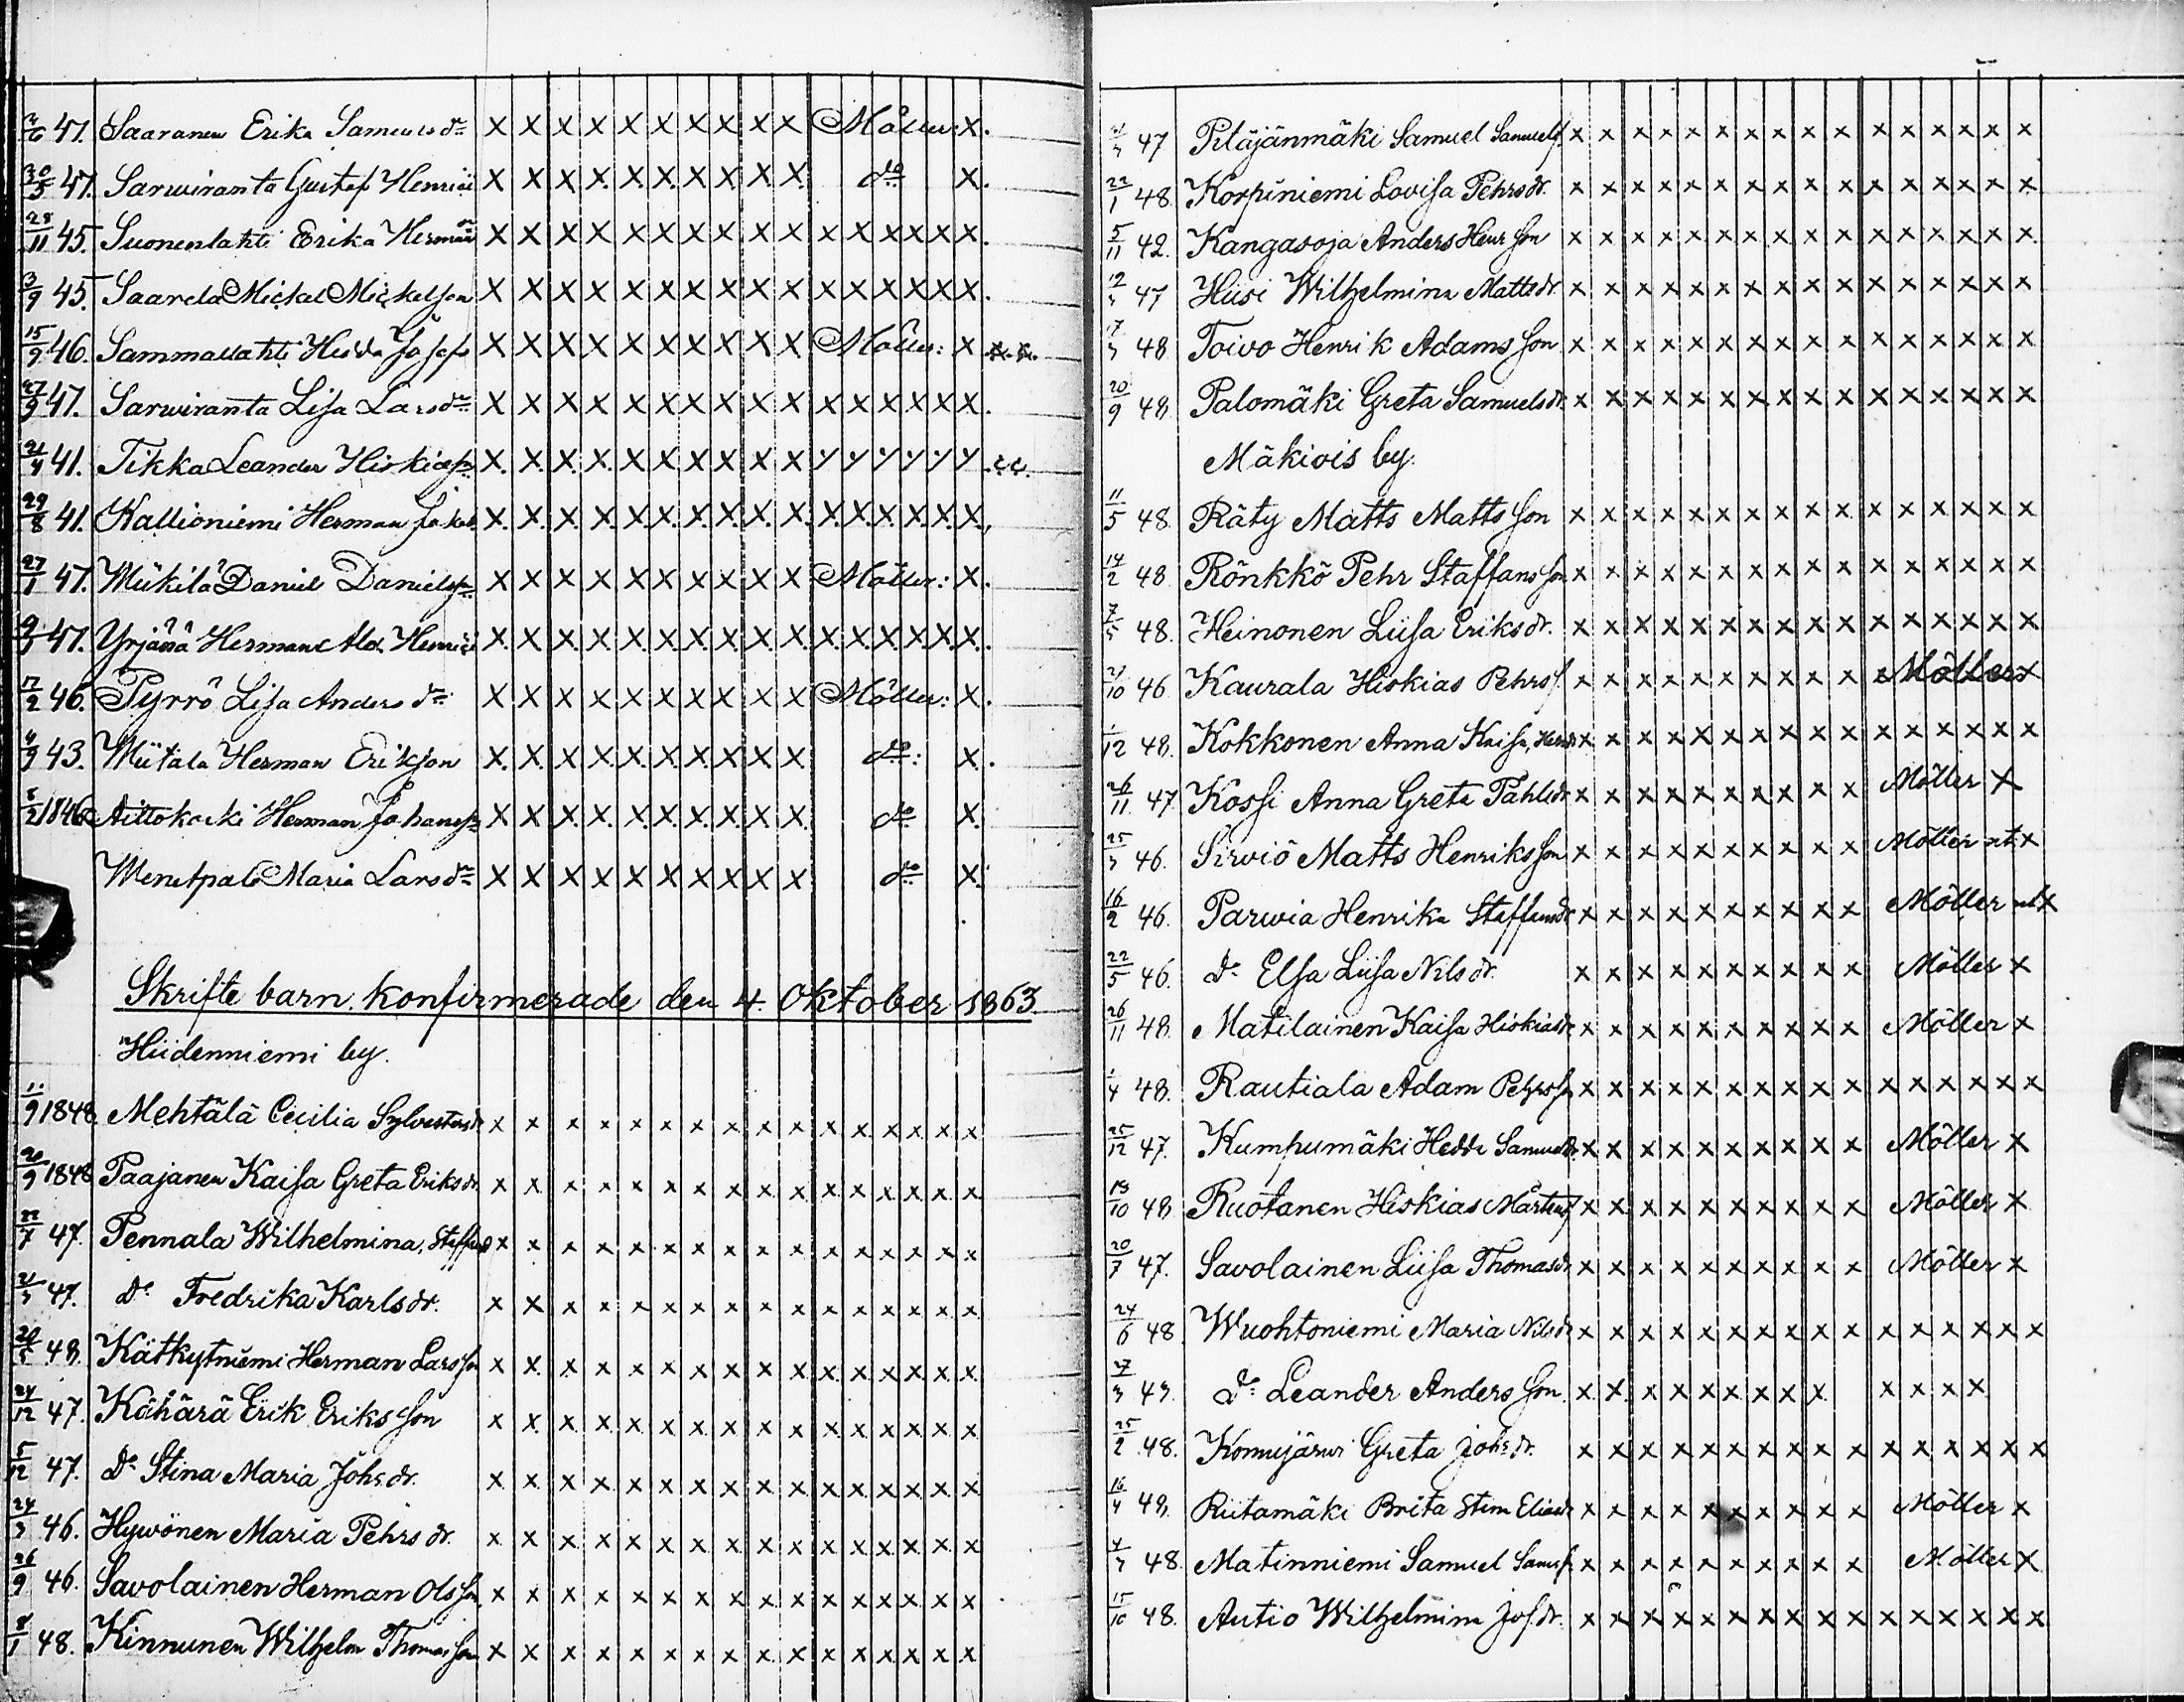 47. Saaranen Erika Samuelsdr x x x x x x x x x x Möller: x.
30/5 47. Sarwiranta Gustaf Henrici x x x x x x x x x x do x.
28/11 45. Suonenlahti Erika Herman x x x x x x x x x x x x x x x x.
3/9 45. Saarela Mickel Mickelson x x x x x x x x x x x x x x x x.
15/9 46. Sammallahti Hedda Josefs x x x x x x x x x x Möller: x
27/9 47. Sarwiranta Lisa Larsdr x x x x x x x x x x x x x x x x.
21/4 41. Tikka Leander Hiskiasson x x x x x x x x x x x x x x x x
29/8 41. Kallioniemi Herman Jakob x x x x x x x x x x x x x x x x
27/1 47. Miikilä Daniel Danielss. x x x x x x x x x x Möller: x.
47. Yrjänä Herman Alex Henrici x x x x x x x x x x x x x x x x.
17/2 46. Pyrrö Lisa Andersdr x x x x x x x x x x Möller: x.
4/9 43. Miitala Herman Erikson x x x x x x x x x x do: x.
8/2 1846 Aittokoski Herman Johanss. x x x x x x x x x x do x.
Wenetpalo Maria Larsdr x x x x x x x x x x do x.
Skrifte barn konfirmerade den 4. Oktober 1863.
Hiidenniemi by.
11/9 1848 Mehtälä Cecilia Sylvestersdr x x x x x x x x x x x x x x x x
20/9 1848 Paajanen Kaisa Greta Eriksdr. x x x x x x x x x x x x x x x x
22/7 47. Pennala Wilhelmina, Staffansd x x x x x x x x x x x x x x x x
21/3 47. Do Fredrika Karlsdr. x x x x x x x x x x x x x x x x
20/5 48. Kätkytniemi Herman Larsson x x x x x x x x x x x x x x x x
24/12 47. Kähärä Erik Eriksson x x x x x x x x x x x x x x x x
5/12 47. Do Stina Maria Johs.dr. x x x x x x x x x x x x x x x x
24/3 46. Hywönen Maria Pehrsdr. x x x x x x x x x x x x x x x x
26/9 46. Savolainen Herman Olsson x x x x x x x x x x x x x x x x
8/1 48. Kinnunen Wilhelm Thomasson x x x x x x x x x x x x x x x x
21/3 47 Pitäjänmäki Samuel Samuels. x x x x x x x x x x x x x x x x
22/1 48. Korpiniemi Lovisa Pehrsdr. x x x x x x x x x x x x x x x x
5/11 42. Kangasoja Anders Henr.son x x x x x x x x x x x x x x x x
12/3 47 Hiisi Wilhelmina Mattsdr. x x x x x x x x x x x x x x x x
17/3 48 Toivo Henrik Adamsson x x x x x x x x x x x x x x x x
20/9 48. Palomäki Greta Samuelsdr. x x x x x x x x x x x x x x x x
Mäkiois by.
11/5 48. Räty Matts Mattsson x x x x x x x x x x x x x x x x
14/2 48 Rönkkö Pehr Staffansson x x x x x x x x x x x x x x x x
7/5 48. Heinonen Liisa Eriksdr. x x x x x x x x x x x x x x x x
21/10 46 Kaurala Hiskias Pehrss. x x x x x x x x x x Möller x
1/12 48. Kokkonen Anna Kaisa x x x x x x x x x x x x x x x x
26/11 47 Kossi Anna Greta Påhlsdr x x x x x x x x x x Möller x
25/3 46. Sirviö Matts Henriksson x x x x x x x x x x Möller x
16/2 46. Parwia Henrika Staffansdr x x x x x x x x x x Möller x
22/5 46. Do Elsa Liisa Nilsdr. x x x x x x x x x x Möller x
26/11 48. Matilainen Kaisa Hiskiasdr x x x x x x x x x x Möller x
1/4 48. Rautiala Adam Pehrsson x x x x x x x x x x x x x x x x
25/12 47. Kumpumäki Hedda Samuelsdr. x x x x x x x x x x Möller x
13/10 48 Ruotanen Hiskias Mårtenss x x x x x x x x x x Möller x
20/7 47. Savolainen Liisa Thomasdr. x x x x x x x x x x Möller x
24/6 48. Wuohtoniemi Maria Nilsdr x x x x x x x x x x x x x x x x
27/3 43. Do Leander Andersson x x x x x x x x x x x x x
25/2 48. Komujärwi Greta Johs.dr. x x x x x x x x x x x x x x x x
16/4 48. Riitamäki Brita Stina Eliasdr x x x x x x x x x x Möller x
4/3 48. Matinniemi Samuel Sams.s. x x x x x x x x x x Möller x
15/10 48. Autio Wilhelmina Jos.dr. x x x x x x x x x x x x x x x x